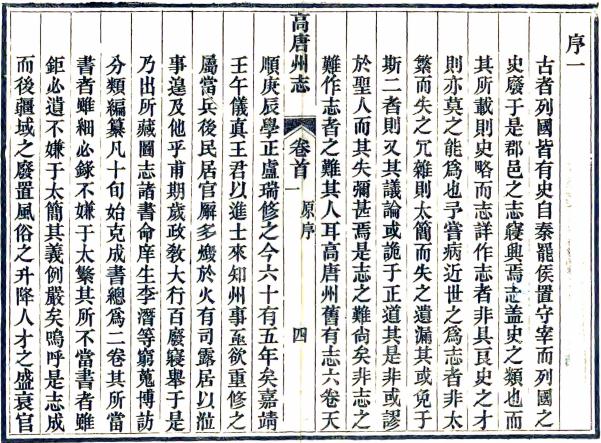 序一
古者列國皆有史自秦罷侯置守宰而列國之
史廢于是郡邑之志寖興焉志盖史之類也而
其所載則史略而志詳作志者非具良史之才
則亦莫之能爲也予嘗病近世之爲志者非太
繁而失之冗雜則太簡而失之遺漏其或免于
斯二者則又其議論或詭于正道其是非或謬
於聖人而其失彌甚焉是志之難尚矣非志之
難作志者之難其人耳高唐州舊有志六卷天
高唐州志
卷首
一
原序
四
順庚辰學正盧瑞修之今六十有五年矣嘉靖
壬午儀真王君以進士來知州事亟欲重修之
屬當兵後民居官廨多燬於火有司露居以涖
事遑及他乎甫期歲政敎大行百廢寖舉于是
乃出所藏圖志諸書命庠生李濳等窮蒐博訪
分類編纂凡十旬始克成書總爲二卷其所當
書者雖細必錄不嫌于太繁其所不當書者雖
鉅必遺不嫌于太簡其義例嚴矣嗚呼是志成
而後疆域之廢置風俗之升降人才之盛衰官